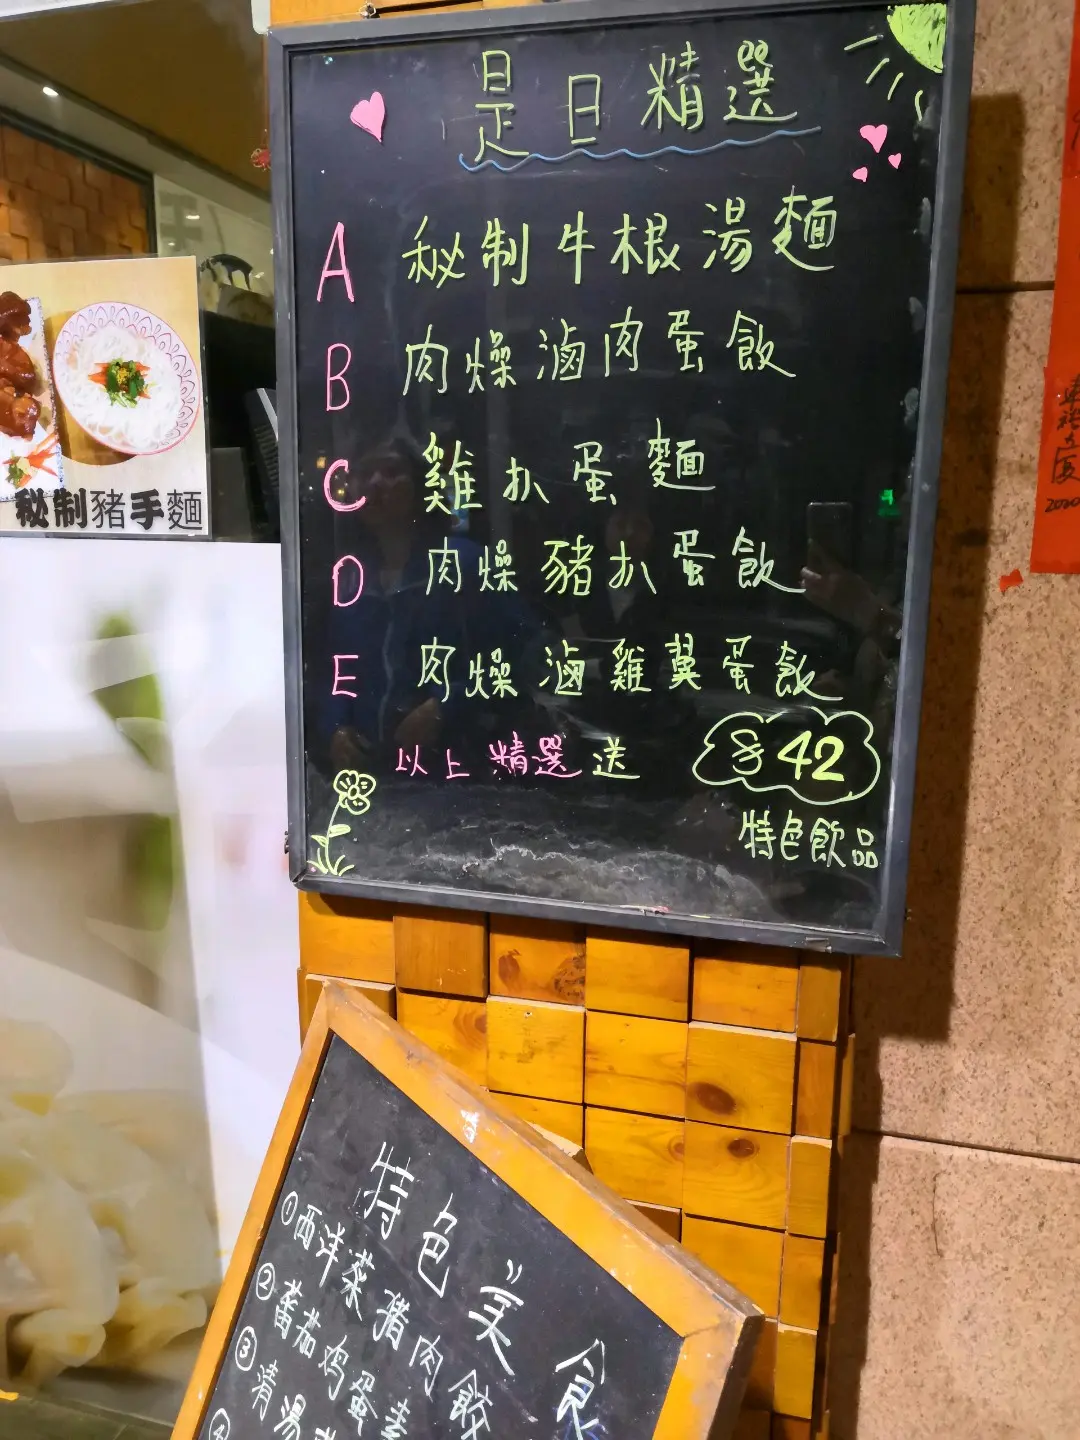 是日精選
A 秘制牛根湯麵
B 肉燥滷肉蛋飯
C 雞扒蛋麵
D 肉燥豬扒蛋飯
E 肉燥滷雞翼蛋飯
以上精選送
42
特色飲品
秘制豬手麵
特色美食
①西洋菜猪肉餃
②蕃茄鸡蛋
③清湯
④